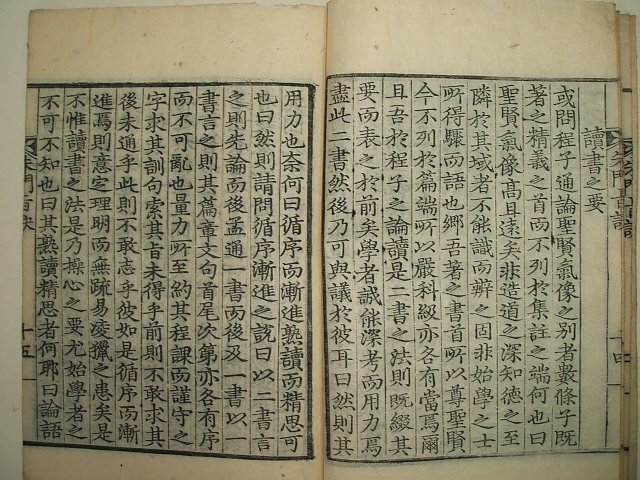 或問程子通論聖賢氣像之別者數條子既
著之精義之首而不列於集註之端何也曰
聖賢氣像高且遠矣非造道之深知德之至
隣於其域者不能識而辨之固非始學之士
所得驟而語也鄉吾著之書首所以尊聖賢
今不列於篇端所以嚴科級亦各有當焉爾
且吾於程子之論讀是二書之法則既綴其
要而表之於前矣學者誠能深考而用力焉
盡此二書然後乃可與議於彼耳曰然則其
讀書之要
用力也奈何曰循序而漸進熟讀而精思可
也曰然則請問循序漸進之說曰以二書言
之則先論而後孟通一書而後及一書以一
書言之則其篇章文句首尾次第亦各有序
而不可亂也量力所至約其程課而謹守之
字求其訓句索其旨未得乎前則不敢求其
後未通乎此則不敢志乎彼如是循序而漸
進焉則意定理明而無疏易凌獵之患矣是
不惟讀書之法是乃操心之要尤始學者之
不可不知也曰其熟讀精思者何耶曰論語
朱門百選
十五
十四